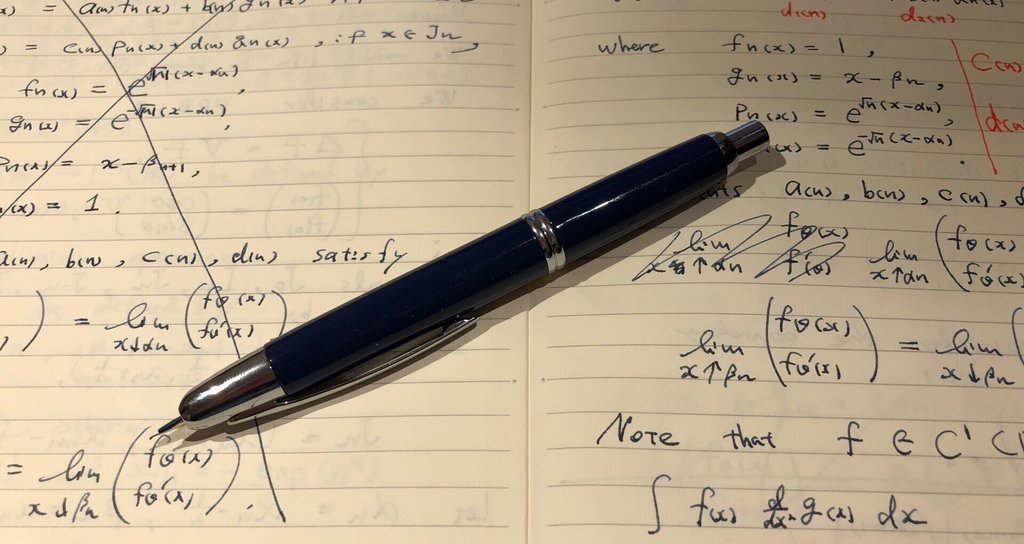 x) = a(n) fn(x) + b(n) gn(x)
) = c(n) pn(x) + d(n) qn(x) , if x ∈ Jn,
fn(x) = e^{√n(x-αn)},
gn(x) = e^{-√n(x-αn)},
pn(x) = x - βn+1,
n(x) = 1.
a(n), b(n), c(n), d(n) satisfy
) = lim x↓αn (fθ(x) fθ'(x))
= lim x↓βn (fθ(x) fθ'(x)).
d1(n) d2(n)
where fn(x) = 1,
gn(x) = x - βn,
pn(x) = e^{√n(x-αn)},
(x) = e^{-√n(x-αn)}.
c(n)
d(n)
a(n), b(n), c(n),
lim x↑αn fθ(x) f'(θ) lim x↑αn (fθ(x) fθ'(x)
lim x↑βn (fθ(x) fθ'(x)) = lim x↓βn (
Note that f ∈ C' (
∫ f(x) d/dx g(x) dx